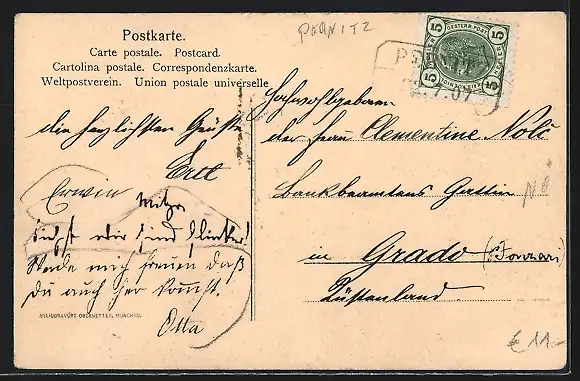 Postkarte.
Carte postale. Postcard.
Cartolina postale. Correspondenzkarte.
Weltpostverein. Union postale universelle
PERNITZ
5 OESTERR. POST 5
5 5
PERNITZ
7.07
Hochwohlgeboren
der Frau Clementine Noli
Bankbeamtens Gattin
in Grado
Küstenland
die herzlichsten Grüße
Ertl
Erwin
Mitzi
Siehst wir sind flinker!
Werde mich freuen daß
Du auch her kommst.
Etta
HELIOGRAVÜRE OBERNETTER, MÜNCHEN.
N Ö
€ 11.-